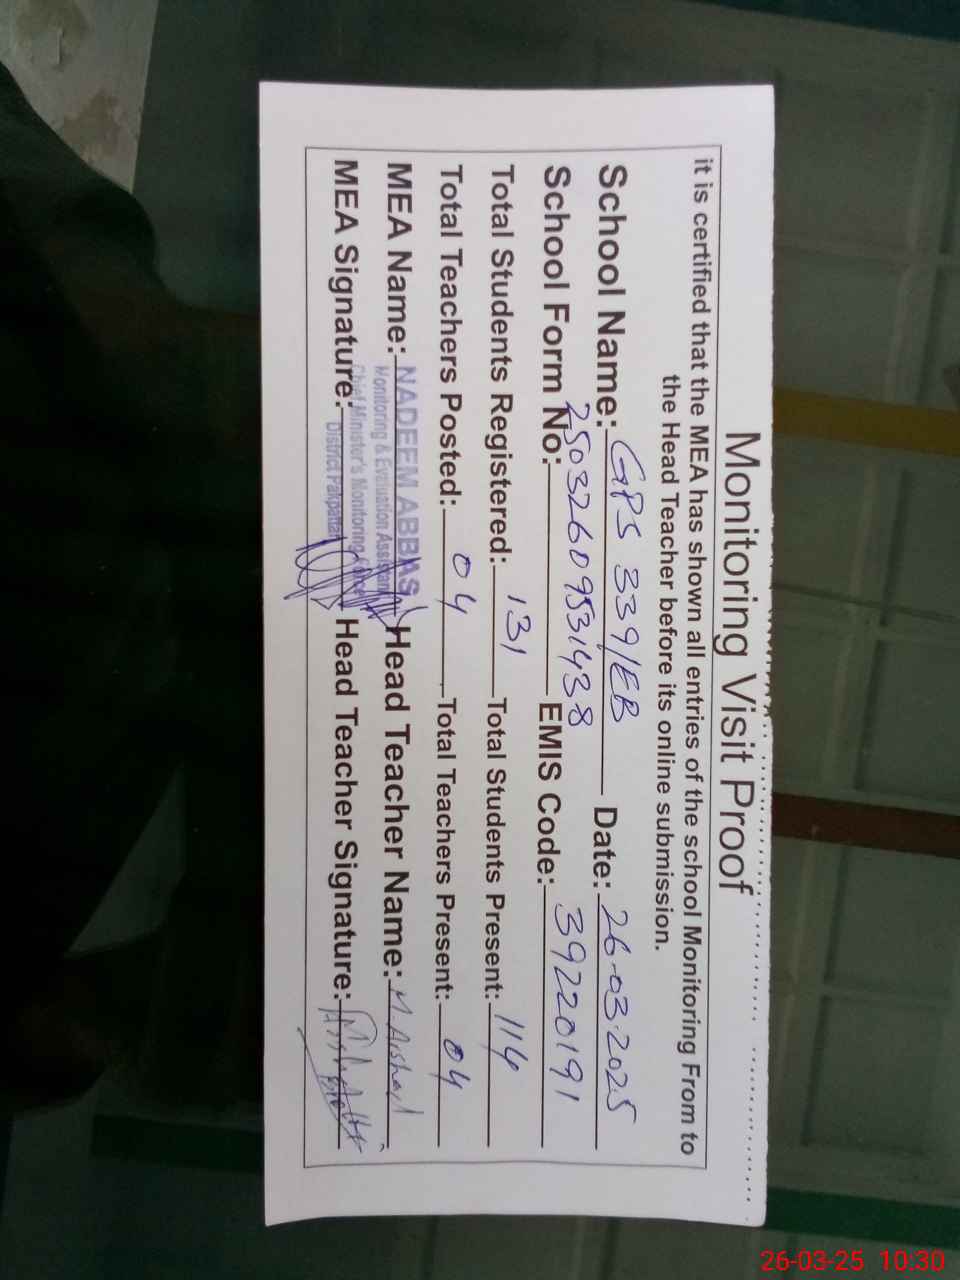 Monitoring Visit Proof
it is certified that the MEA has shown all entries of the school Monitoring From to
the Head Teacher before its online submission.
School Name: GPS 339/EB Date: 26-03-2025
School Form No: 25032609531438 EMIS Code: 39220191
Total Students Registered: 131 Total Students Present: 114
Total Teachers Posted: 04 Total Teachers Present: 04
MEA Name: NADEEM ABBAS Head Teacher Name: M. Arshad
Monitoring & Evaluation Assistant
Chief Minister's Monitoring Force
District Pakpattan
MEA Signature: Head Teacher Signature:
26-03-25 10:30